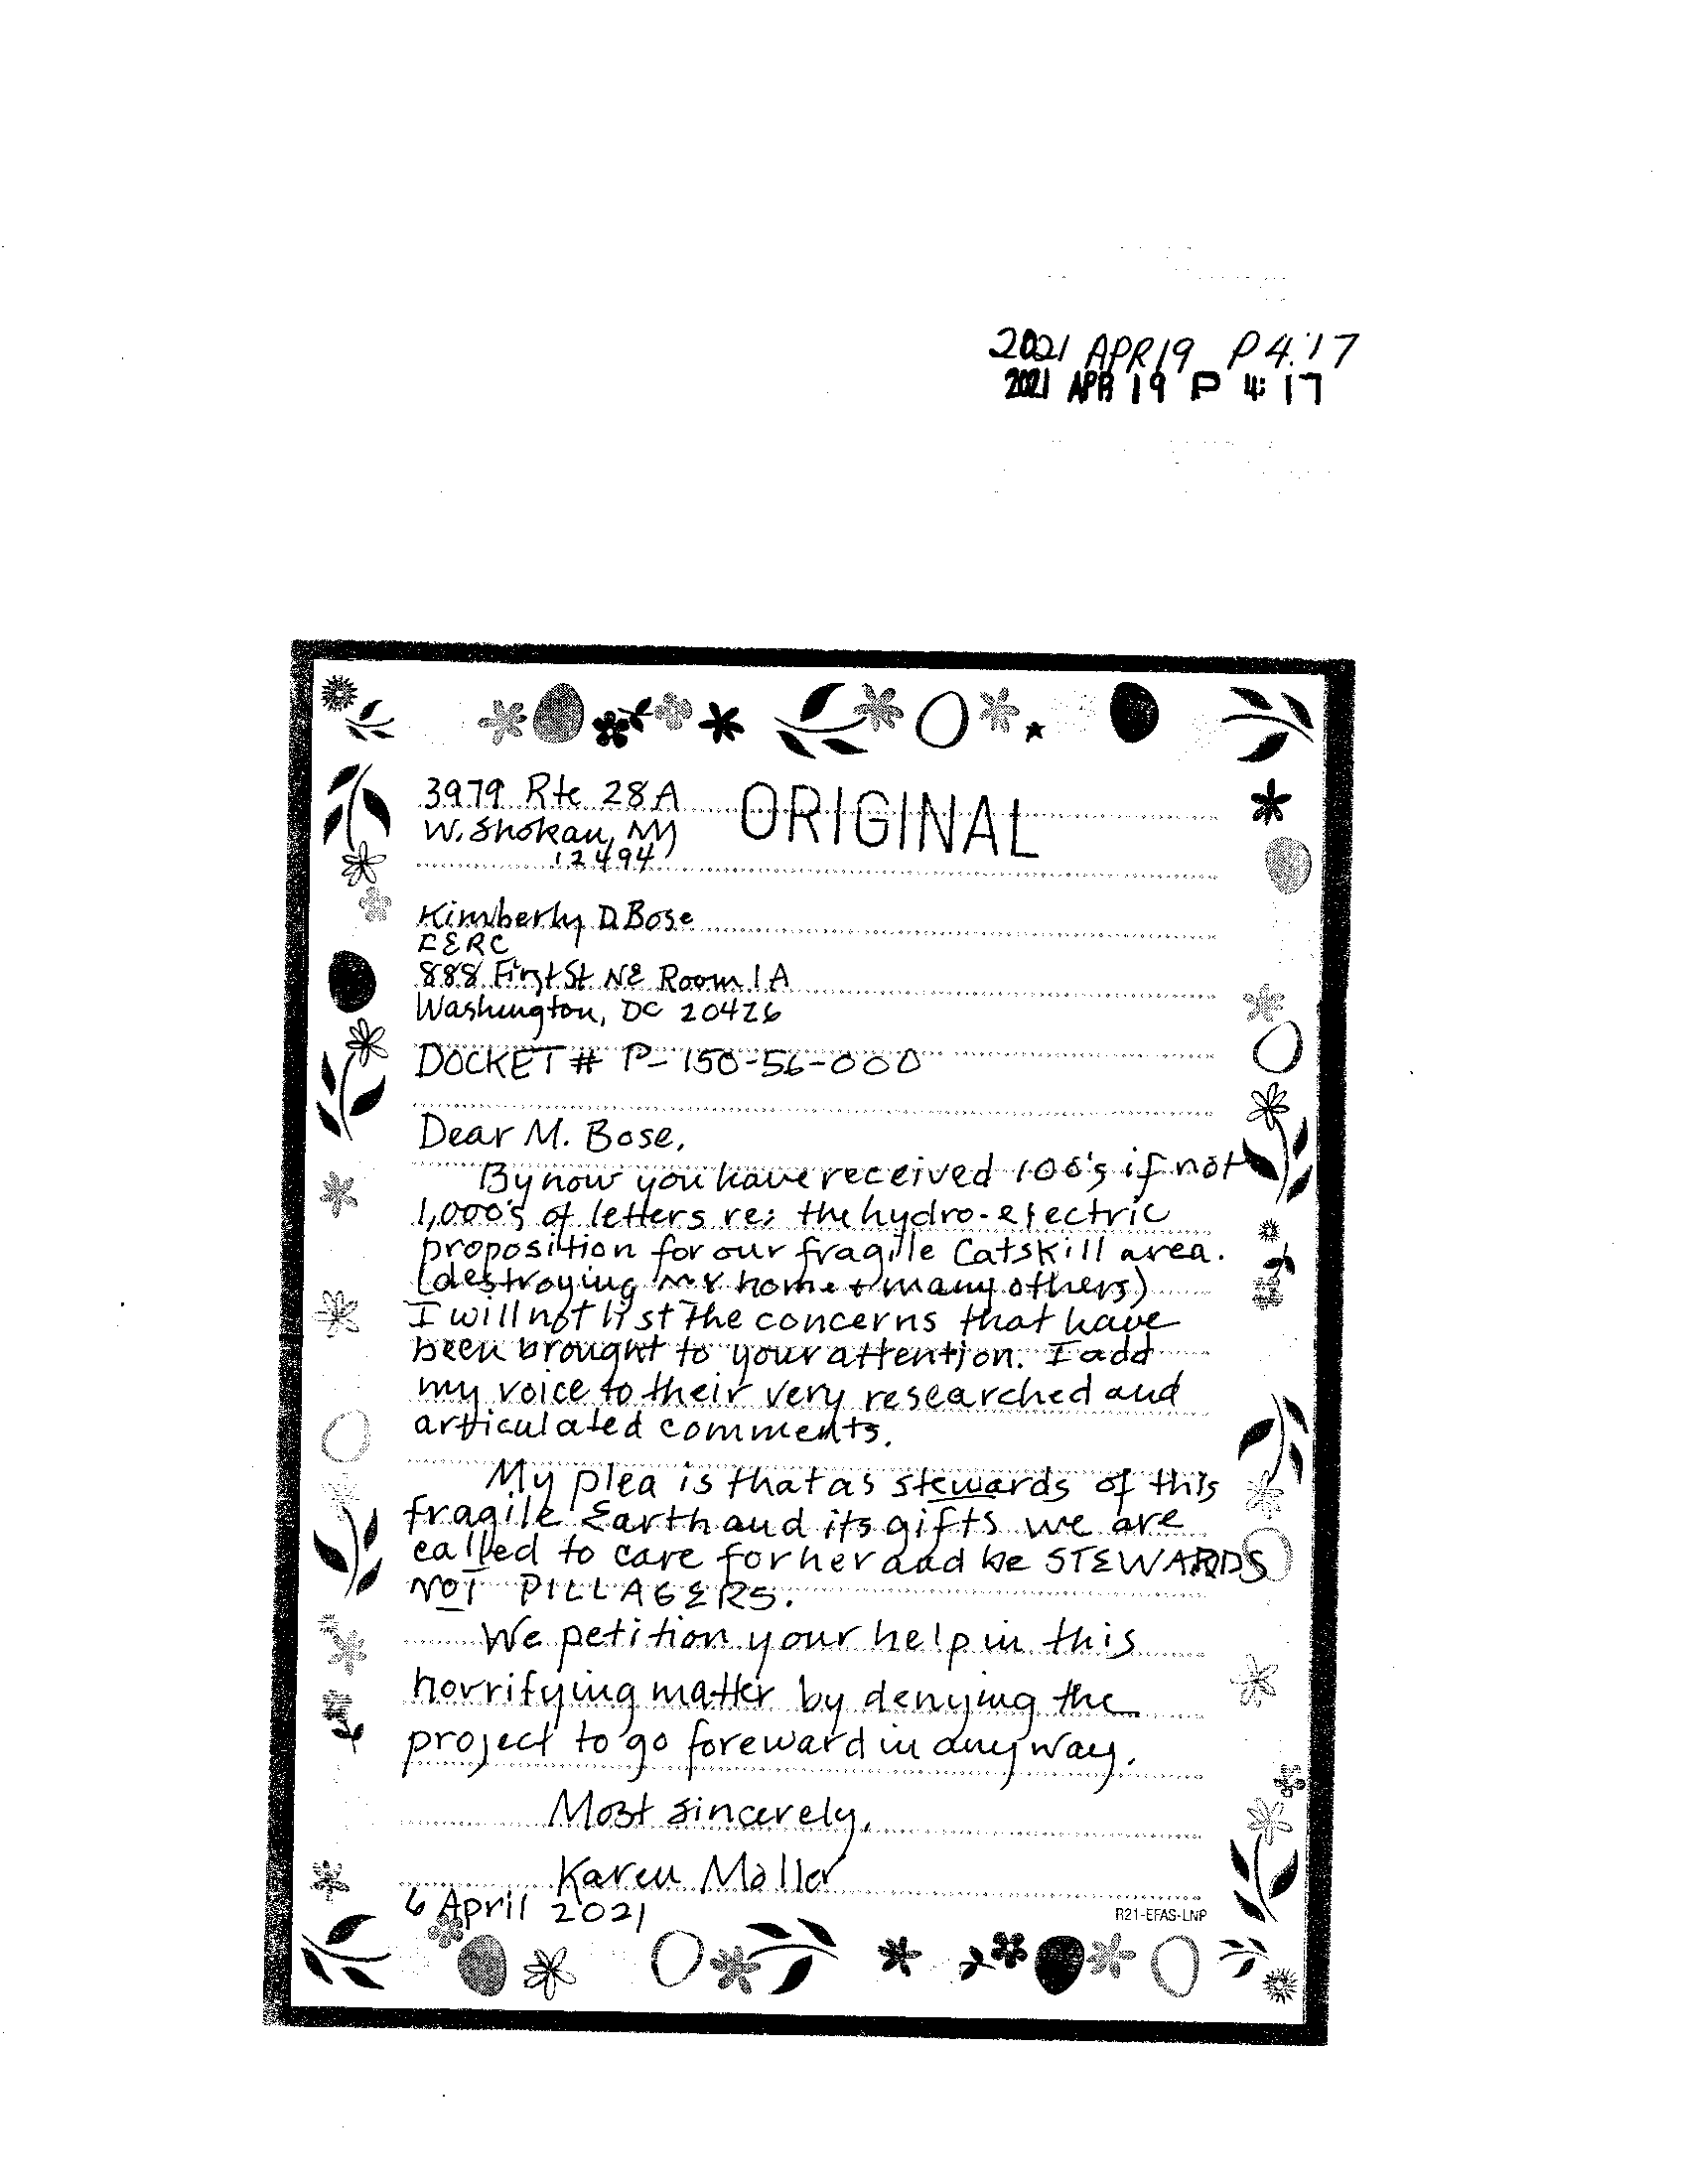 2021 APR 19 P 4:17
2021 APR 19 P 4: 17
3979 Rte 28A
ORIGINAL
W. Shokan, NY
12494
Kimberly D. Bose
FERC
888 First St NE Room 1A
Washington, DC 20426
DOCKET # P-150-56-000
Dear M. Bose,
By now you have received 100's if not
1,000's of letters re: the hydro-electric
proposition for our fragile Catskill area.
(destroying my home + many others)
I will not list the concerns that have
been brought to your attention. I add
my voice to their very researched and
articulated comments.
My plea is that as stewards of this
fragile Earth and its gifts we are
called to care for her and be STEWARDS
NOT PILLAGERS.
We petition your help in this
horrifying matter by denying the
project to go foreward in any way.
Most sincerely,
Karen
6 April 2021
R21-EFAS-LNP